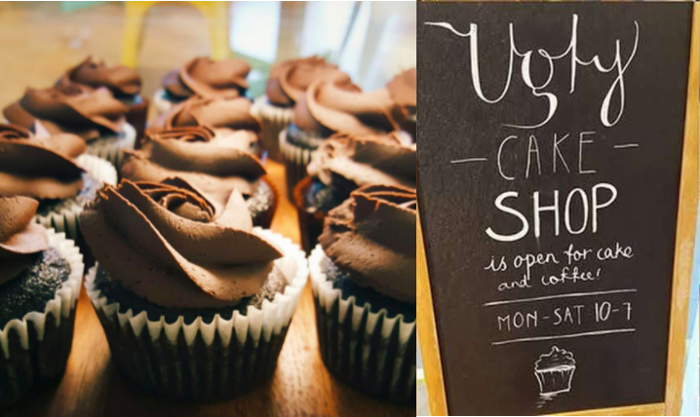 Ugly
- CAKE -
SHOP
is open for cake
and coffee!
MON-SAT 10-7